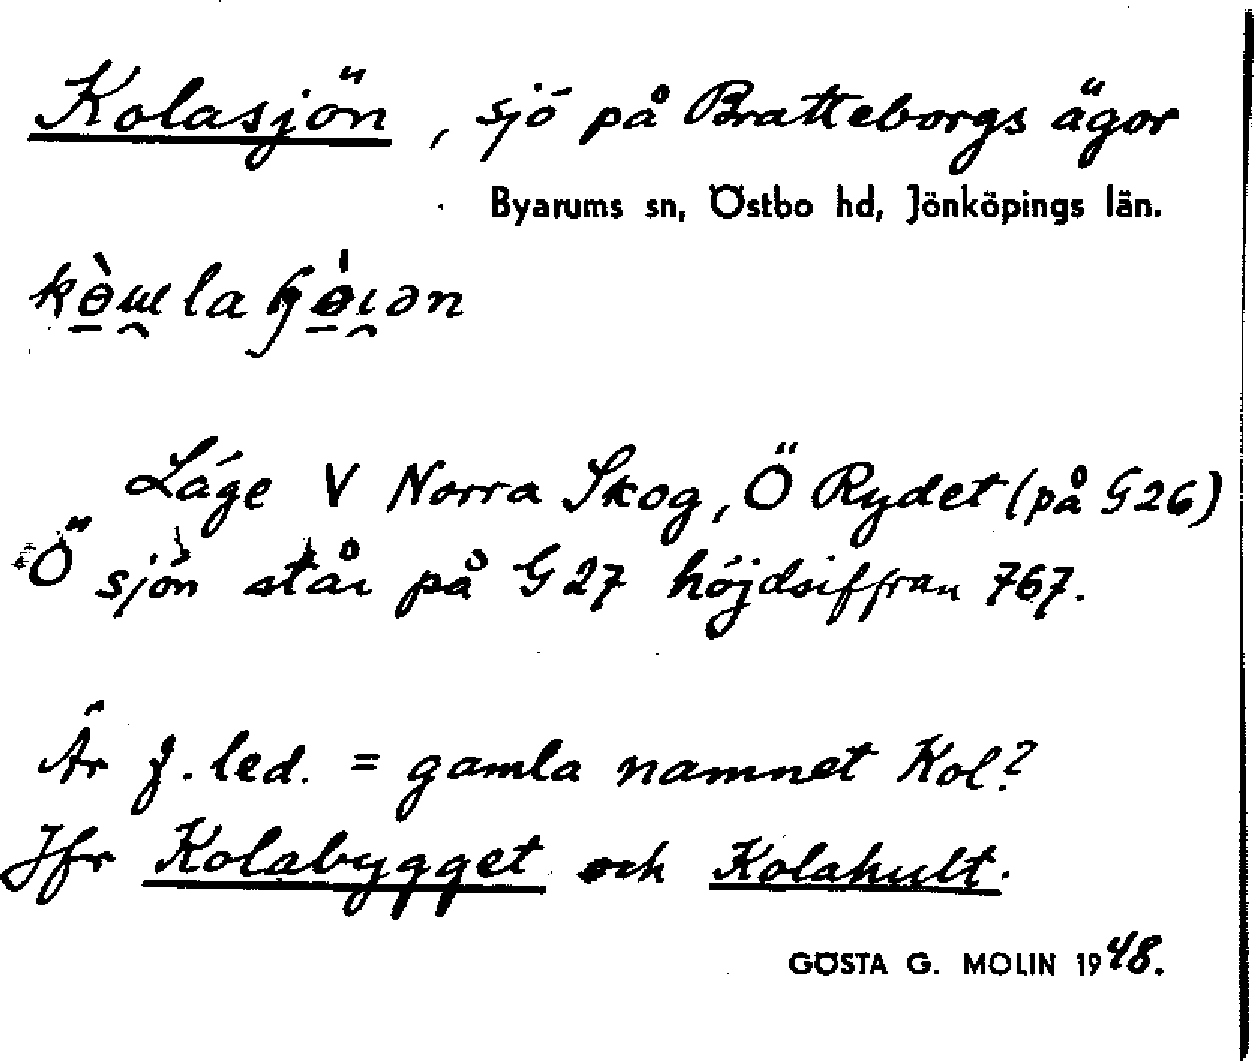 Kolasjön, sjö på Bratteborgs ägor
Byarums sn, Östbo hd, Jönköpings län.
Läge V Norra Skog, Ö Rydet (på G26)
Ö sjön står på G27 höjdsiffran 767.
Är f. led. = gamla namnet Kol?
Jfr Kolabygget och Kolahult.
GÖSTA G. MOLIN 1948.